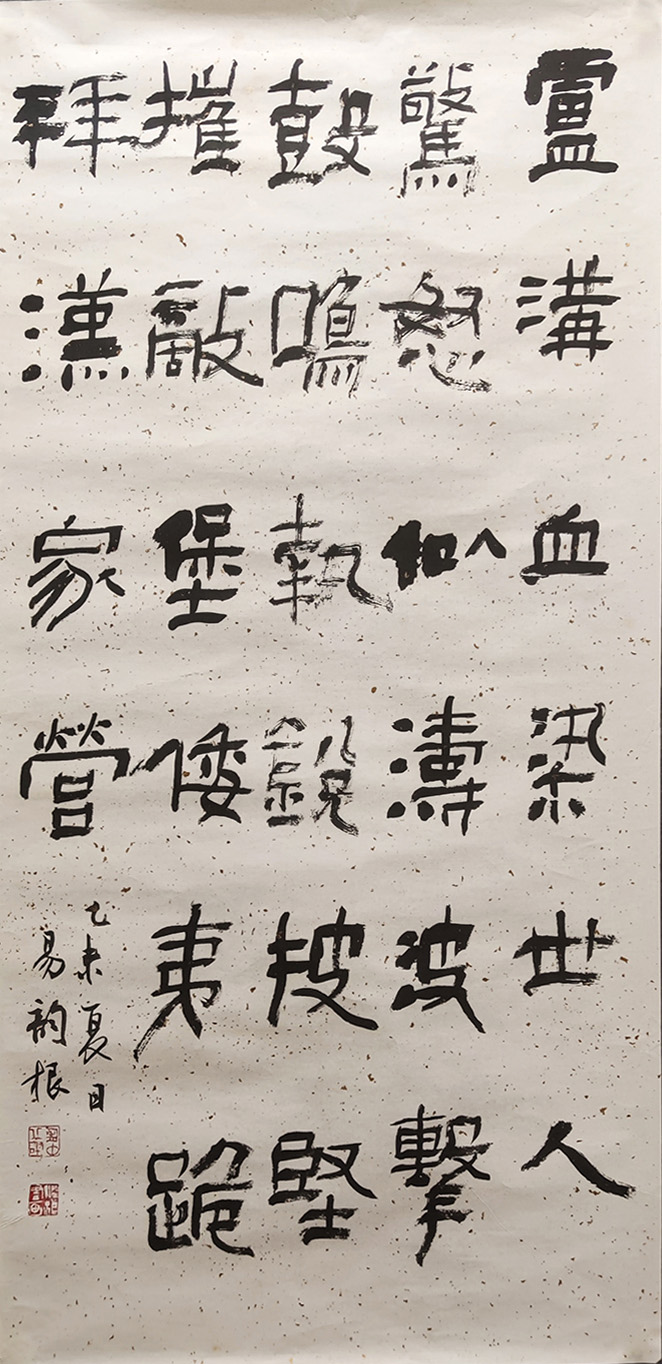 盧溝血染世人
驚怒似濤波擊
鼓鳴執銳披堅
摧敵堡倭夷跪
拜漢家營
乙未夏日
易韵根